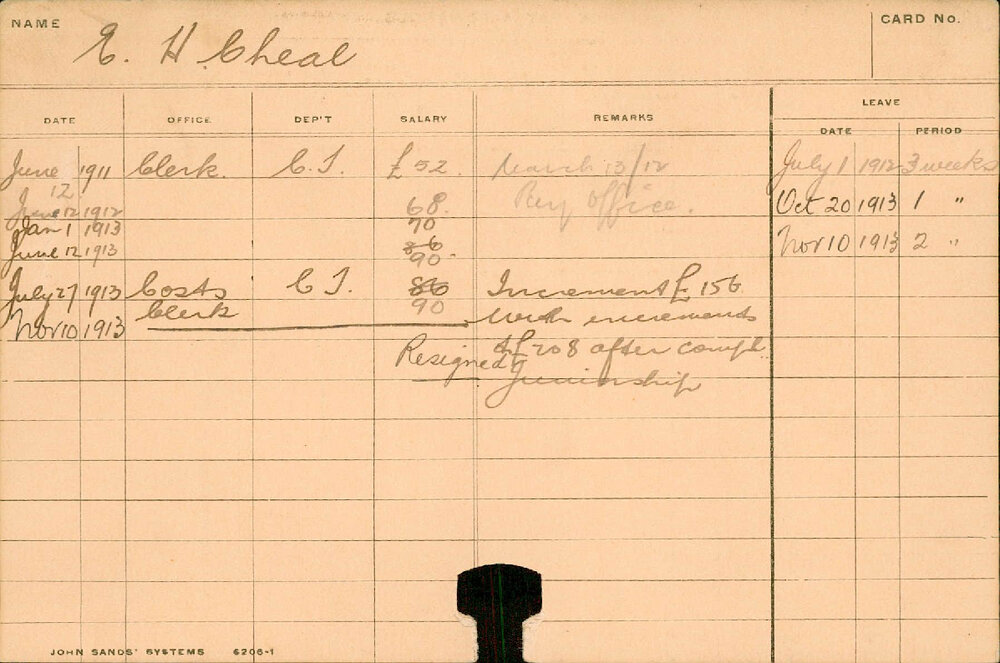 NAME E. H. Cheal CARD No.
LEAVE
DATE OFFICE DEP'T SALARY REMARKS DATE PERIOD
June 12 1911 Clerk. C.T. £52. March 13/12 July 1 1912 3 weeks
June 12 1912 68. Pay Office. Oct 20 1913 1 "
Jan 1 1913 70
June 12 1913 86 90. Nov 10 1913 2 "
July 27 1913 Costs C T. 86 Increment £156
Clerk 90 with increments
Nov 10 1913
Resigned £208 after compl.
Juniorship
JOHN SANDS' SYSTEMS 6206-1